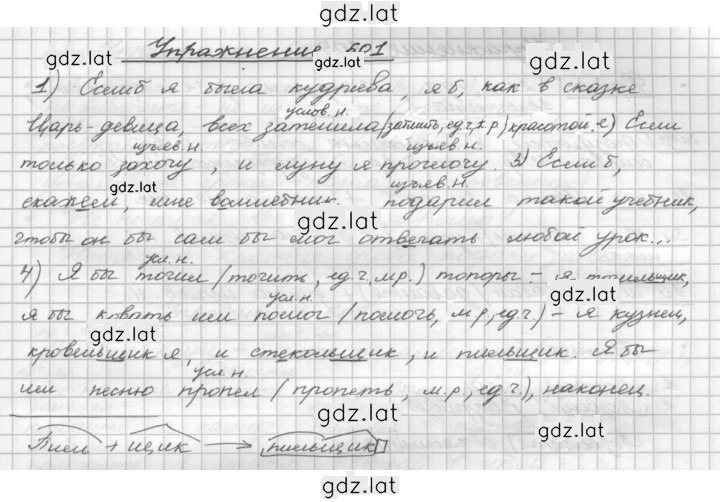 gdz.lat
Упражнение 501
gdz.lat
gdz.lat
1) Если б я была кудрява, я б, как в сказке
услов.н.
Царь-девица, всех затмила (затмить, ед.ч, ж.р) красотой. 2) Если
изъяв.н. изъяв.н.
только захочу, и луну я проглочу. 3) Если б,
gdz.lat изъяв.н.
скажем, мне волшебник подарил такой учебник,
gdz.lat
чтобы он бы сам бы мог отвечать любой урок...
усл.н.
4) Я бы точил (точить, ед.ч, м.р.) топоры – я точильщик,
gdz.lat
усл.н.
я бы ковать им помог (помочь, м.р, ед.ч) – я кузнец,
gdz.lat
кровельщик я, и стекольщик, и пильщик. Я бы
усл.н.
им песню пропел (пропеть, м.р, ед.ч.), наконец.
gdz.lat
gdz.lat
Пиль + щик → пильщик
gdz.lat